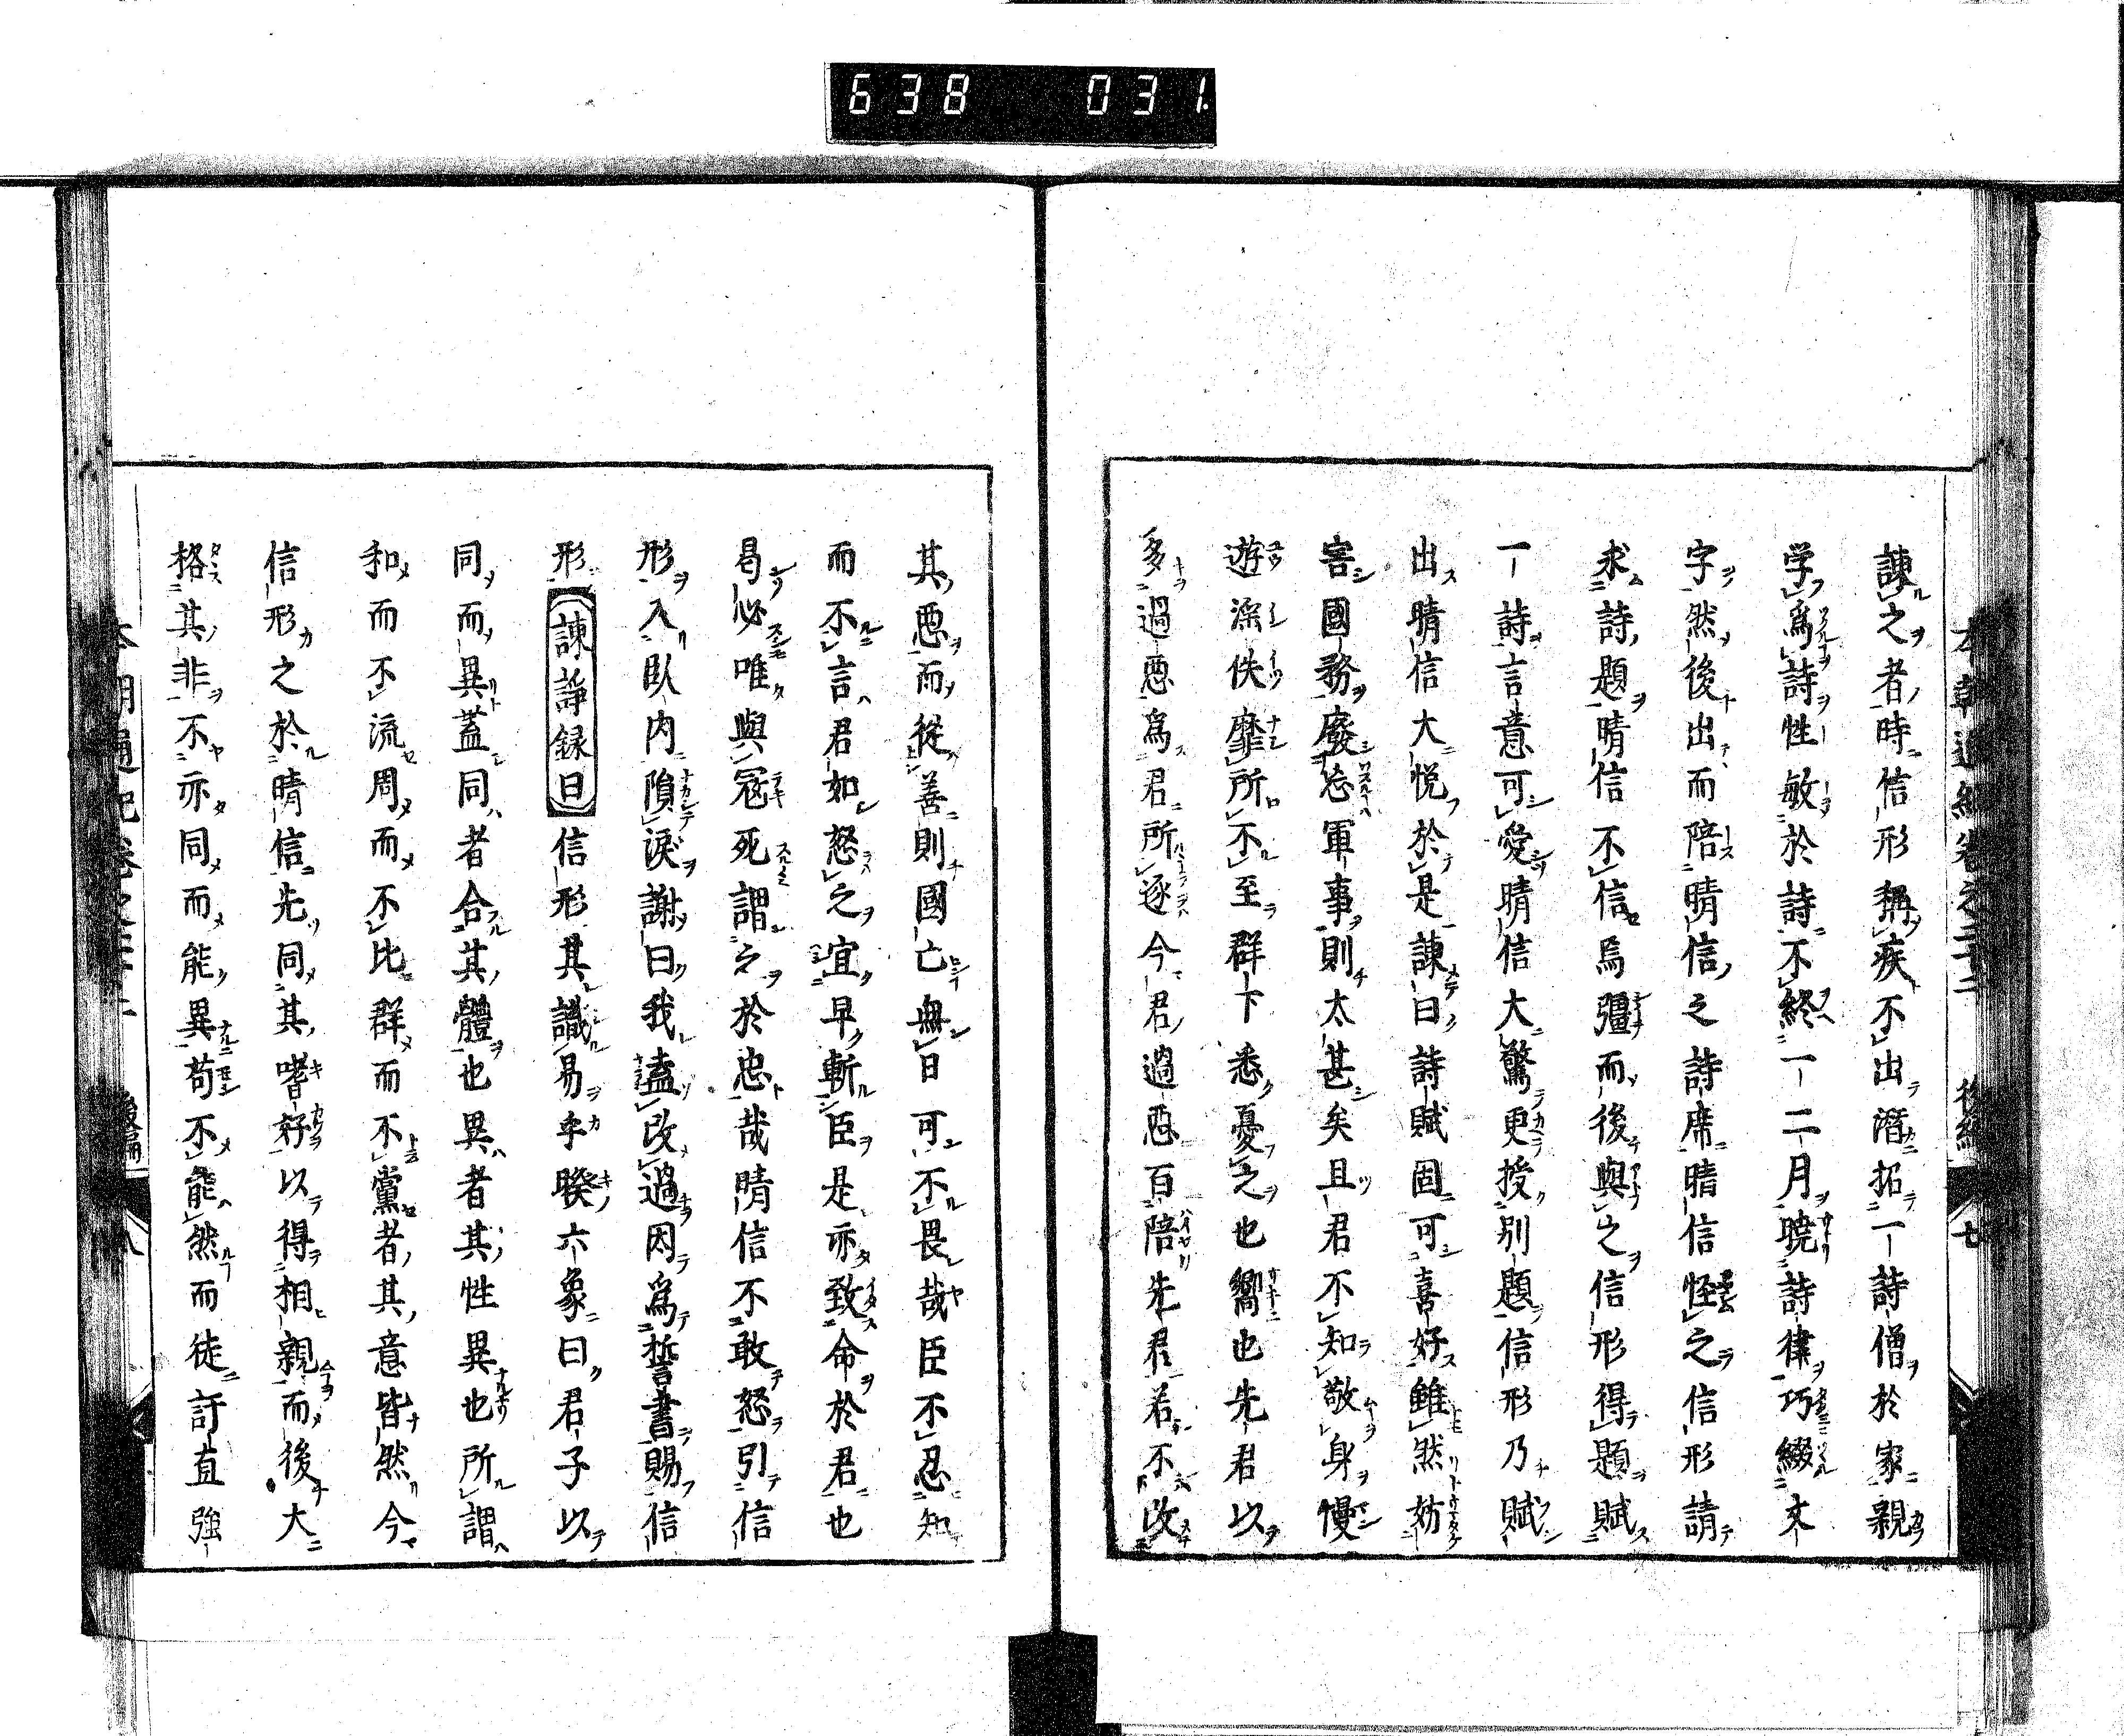 638 031
諫之者時信形稱疾不出潛招一詩僧於家親
学爲詩性敏於詩不終一二月曉詩律巧綴文
字然後出而陪晴信之詩席晴信怪之信形請
求詩題晴信不信焉彊而後與之信形得題賦
一詩言意可愛晴信大驚更授別題信形乃賦
出晴信大悦於是諫曰詩賦固可喜好雖然妨
害國務廢忘軍事則太甚矣且君不知敬身慢
遊淫佚靡所不至群下悉憂之也嚮也先君以
多過惡爲君所逐今君過惡百陪先君若不改
其惡而從善則國亡無日可不畏哉臣不忍知
而不言君如怒之宜早斬臣是亦致命於君也
曷必唯與冦死謂之於忠哉晴信不敢怒引信
形入臥内隕淚謝曰我盍改過因爲誓書賜信
形諫諍録曰信形其識易乎睽六象曰君子以
同而異蓋同者合其體也異者其性異也所謂
和而不流周而不比群而不黨者其意皆然今
信形之於晴信先同其嗜好以得相親而後大
格其非不亦同而能異苟不能然而徒訐直強